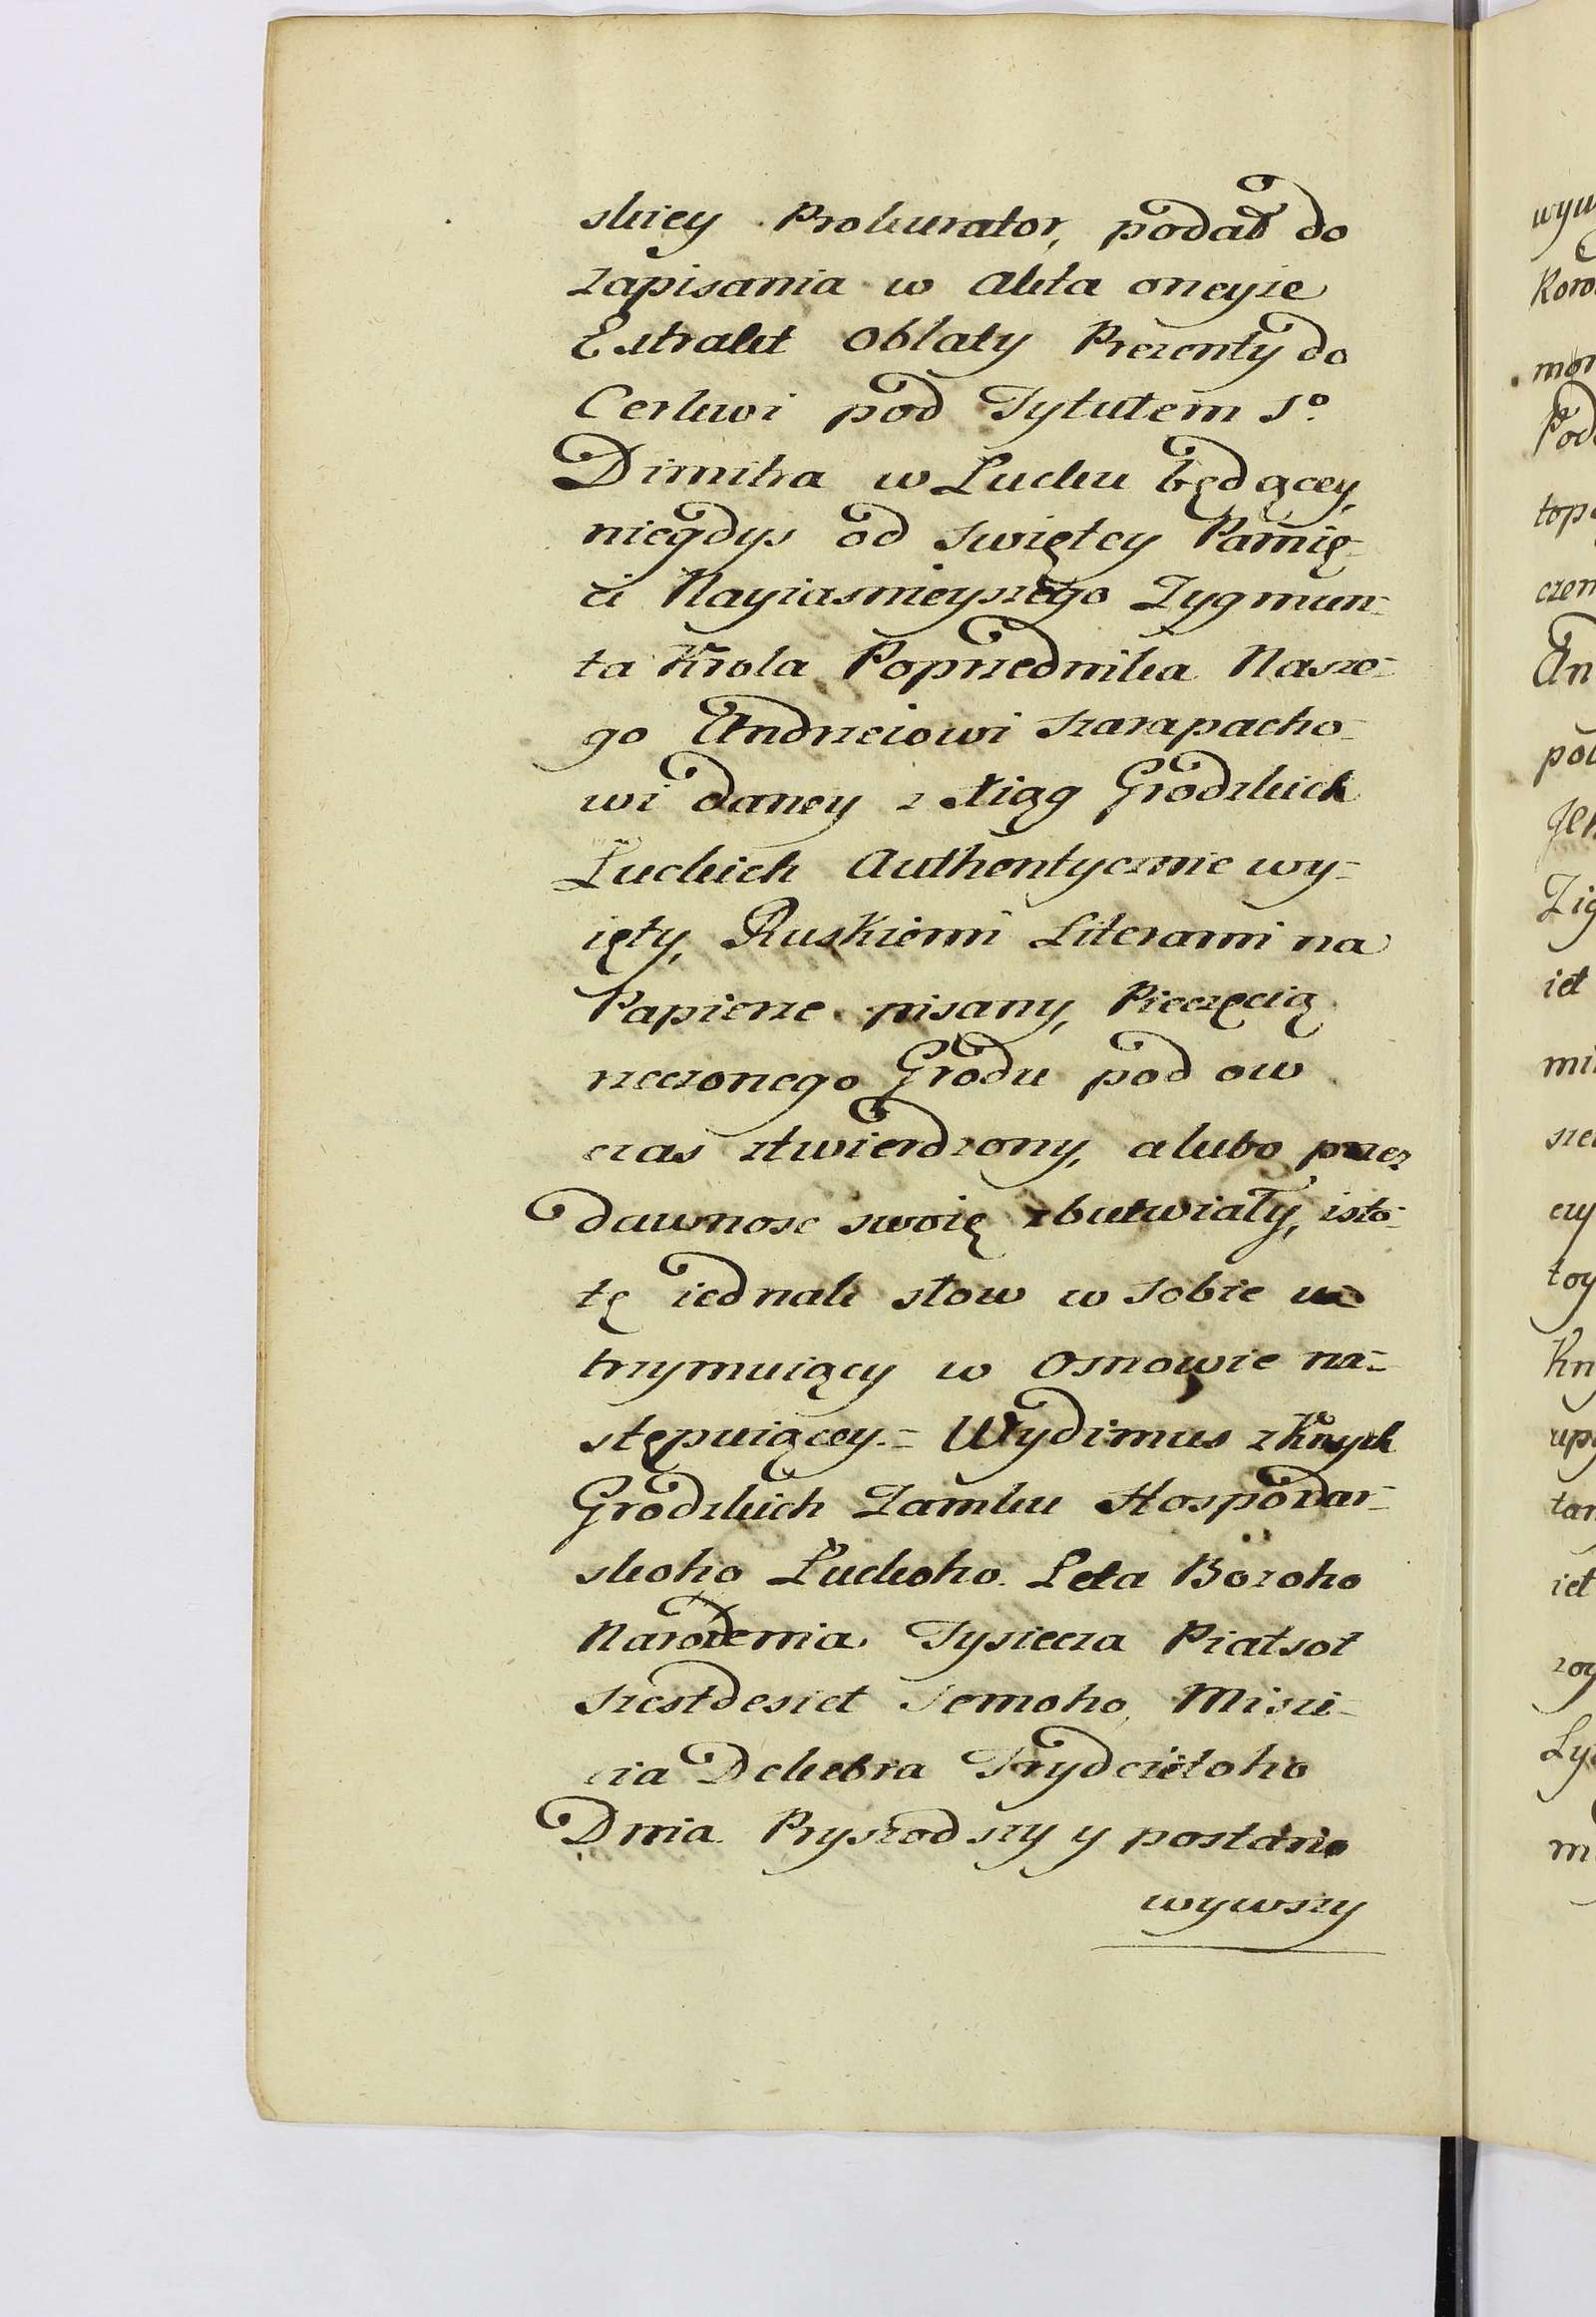 skiey Prokurator, podał do
zapisania w Akta oneyże
Extrakt Oblaty Prezenty do
Cerkwi pod Tytułem So.
Dimitra w Łucku będącey,
niegdys od Swiętey Pamię-
ci Nayiasnieyszego Zygmun-
ta Krola Poprzednika Nasze-
go Andrzeiowi Szarapacho-
wi daney z Xiąg Grodzkich
Łuckich Authentycznie wy-
ięty, Ruskiemi Literami na
Papierze pisany, Pieczęcią
rzeczonego Grodu pod ow
czas ztwierdzony, a lubo przez
dawnosc swoię zbutwiały, isto-
tę iednak słow w sobie u
trzymuiący w Osnowie na-
stępuiącey.- Wydimus z Knych
Grodzkich Zamku Hospodar-
skoho Łuckoho. Leta Bożoho
Narożenia Tysiecza Piatsot
Szestdesiet Semoho, Misie-
cia Dekebra Trydcietoho
Dnia Pryszodszy y postano
wywszy
wyw
Koro
mon
Pod
top
czem
An
pol
Jeh
Zig
iet
mi
sze
czy
toy
Kn
upo
tar
iet
zoy
Ly
m